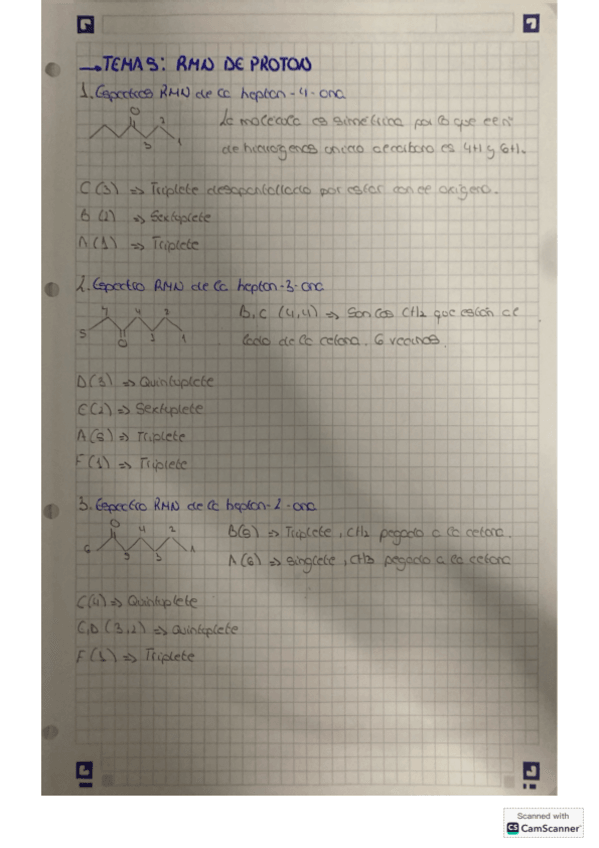 → TEMA 5: RMN DE PROTON
1. Espectros RMN de la heptan-4-ona
O
2
3
1
La molecula es simetrica por lo que el nº
de hidrogenos unido al carbono es 4H y 6H.
C (3) => Triplete desapantallado por estar con el oxigeno.
B (2) => Sextuplete
A (1) => Triplete
2. Espectro RMN de la heptan-3-ona
4 2
5
O 3 1
B, C (4,4) => Son los CH2 que estan al
lado de la cetona. 6 vecinos.
D (3) => Quintuplete
E (2) => Sextuplete
A (5) => Triplete
F (1) => Triplete
3. Espectro RMN de la heptan-2-ona
O 4 2
6 5 3 1
B (5) => Triplete, CH2 pegado a la cetona.
A (6) => Singlete, CH3 pegado a la cetona
C (4) => Quintuplete
C, D (3,2) => Quintuplete
F (1) => Triplete
Scanned with
CS CamScanner